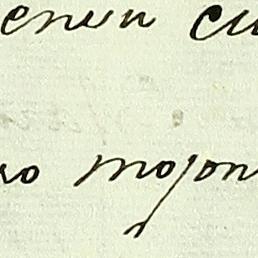 enen cu
ro mojon